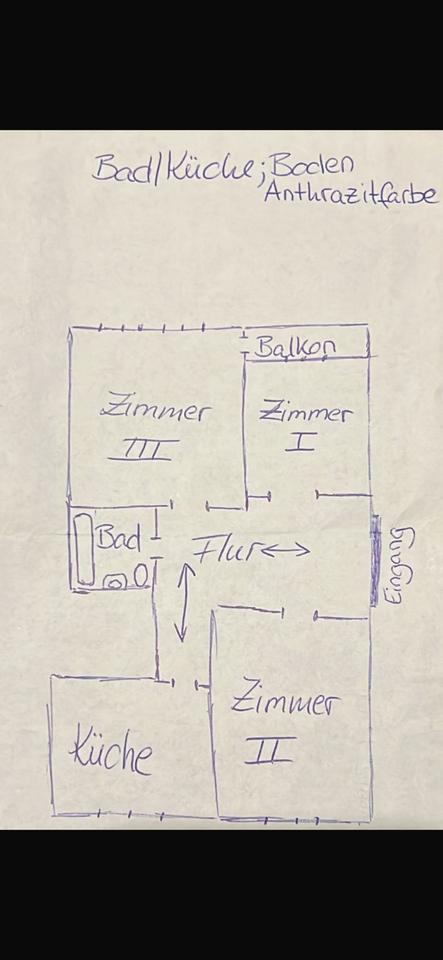 Bad/Küche; Boden
Anthrazitfarbe
Balkon
Zimmer
III
Zimmer
I
Bad
Flur
Eingang
Zimmer
II
Küche